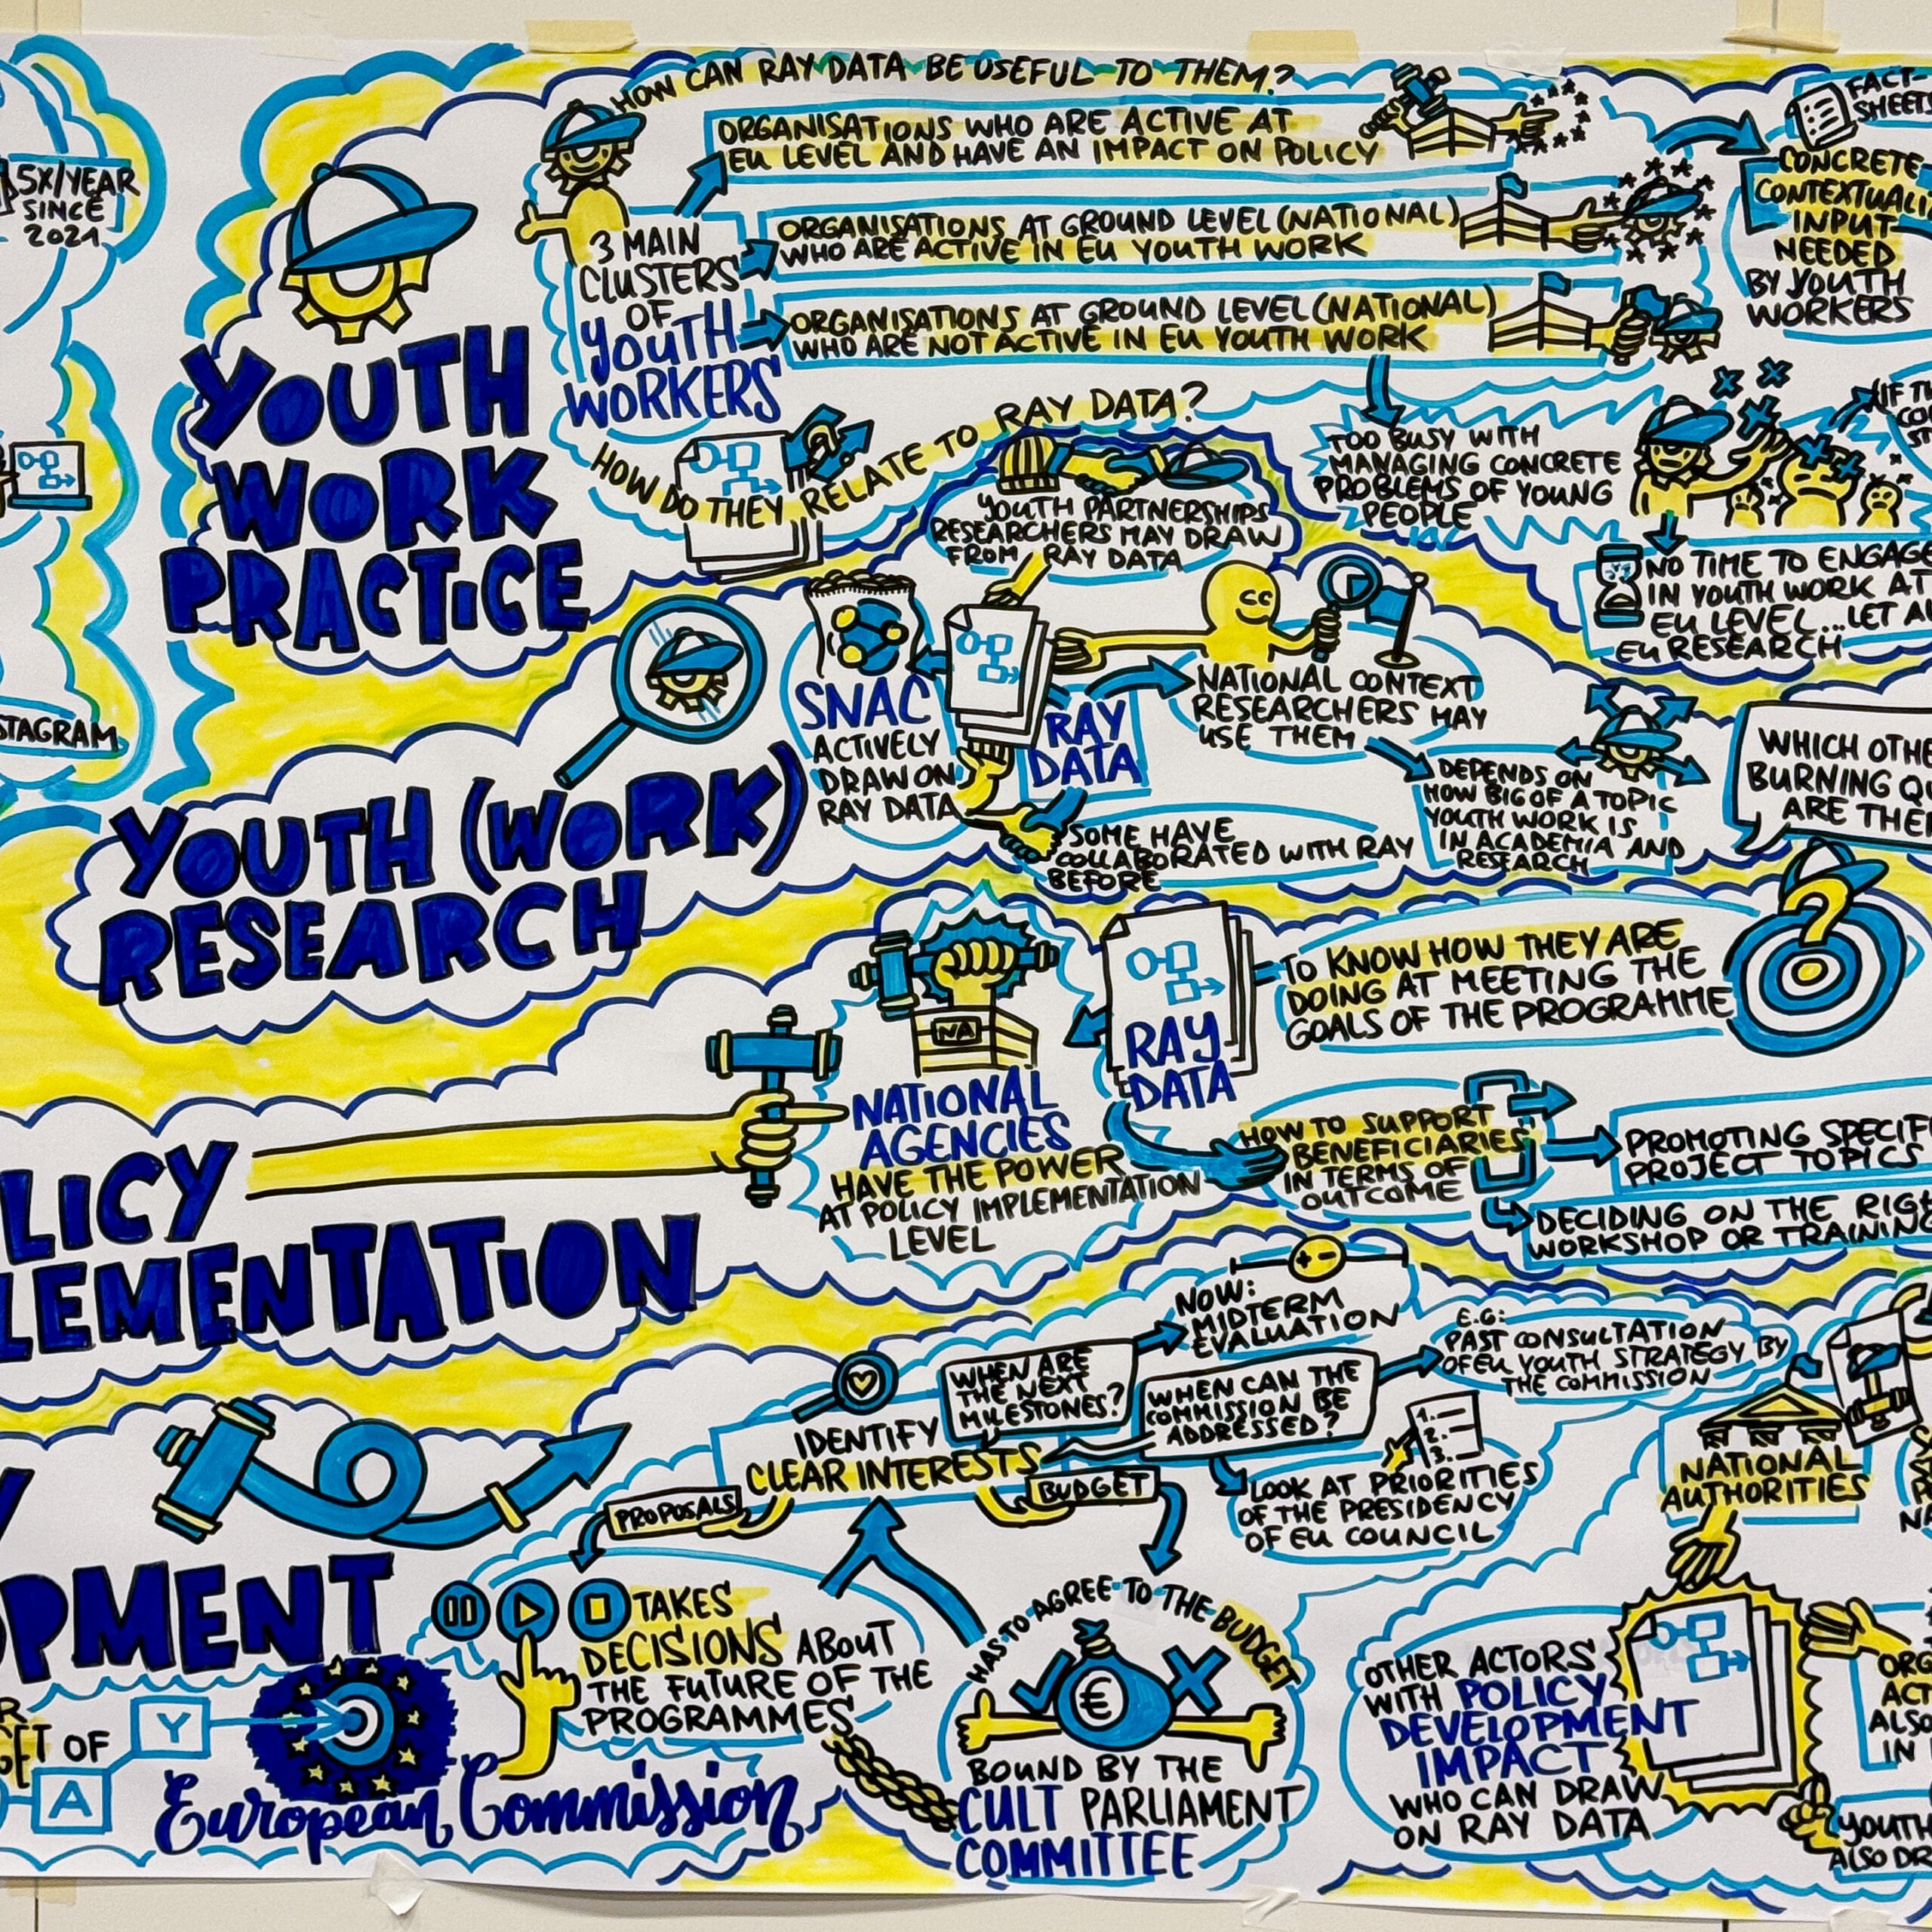 5X/YEAR
SINCE
2021
STAGRAM
HOW CAN RAY DATA BE USEFUL TO THEM?
3 MAIN
CLUSTERS
OF
YOUTH
WORKERS
ORGANISATIONS WHO ARE ACTIVE AT
EU LEVEL AND HAVE AN IMPACT ON POLICY
ORGANISATIONS AT GROUND LEVEL (NATIONAL)
WHO ARE ACTIVE IN EU YOUTH WORK
ORGANISATIONS AT GROUND LEVEL (NATIONAL)
WHO ARE NOT ACTIVE IN EU YOUTH WORK
FACT-
SHEETS
CONCRETE
CONTEXTUALI
INPUT
NEEDED
BY YOUTH
WORKERS
YOUTH
WORK
PRACTICE
HOW DO THEY RELATE TO RAY DATA?
TOO BUSY WITH
MANAGING CONCRETE
PROBLEMS OF YOUNG
PEOPLE
IF TH
CO
NO TIME TO ENGAGE
IN YOUTH WORK AT
EU LEVEL...LET A
EU RESEARCH
YOUTH PARTNERSHIPS
RESEARCHERS MAY DRAW
FROM RAY DATA
SNAC
ACTIVELY
DRAW ON
RAY DATA
RAY
DATA
NATIONAL CONTEXT
RESEARCHERS MAY
USE THEM
DEPENDS ON
HOW BIG OF A TOPIC
YOUTH WORK IS
IN ACADEMIA AND
RESEARCH
SOME HAVE
COLLABORATED WITH RAY
BEFORE
WHICH OTHE
BURNING QU
ARE THE
YOUTH (WORK)
RESEARCH
NA
NATIONAL
AGENCIES
HAVE THE POWER
AT POLICY IMPLEMENTATION
LEVEL
RAY
DATA
TO KNOW HOW THEY ARE
DOING AT MEETING THE
GOALS OF THE PROGRAMME
?
HOW TO SUPPORT
BENEFICIARIES
IN TERMS OF
OUTCOME
PROMOTING SPECIF
PROJECT TOPICS
DECIDING ON THE RIG
WORKSHOP OR TRAINING
LICY
LEMENTATION
NOW:
MIDTERM
EVALUATION
WHEN ARE
THE NEXT
MILESTONES?
WHEN CAN THE
COMMISSION BE
ADDRESSED?
E.G:
PAST CONSULTATION
OF EU YOUTH STRATEGY BY
THE COMMISSION
IDENTIFY
CLEAR INTERESTS
PROPOSALS
BUDGET
1.
2.
3.
LOOK AT PRIORITIES
OF THE PRESIDENCY
OF EU COUNCIL
NATIONAL
AUTHORITIES
Y
OPMENT
TAKES
DECISIONS ABOUT
THE FUTURE OF THE
PROGRAMMES
R
GET OF
Y
A
European Commission
HAS TO AGREE TO THE BUDGET
€
BOUND BY THE
CULT PARLIAMENT
COMMITTEE
OTHER ACTORS
WITH POLICY
DEVELOPMENT
IMPACT
WHO CAN DRAW
ON RAY DATA
ORG
ACT
ALSO
IN
YOUTH
ALSO DR